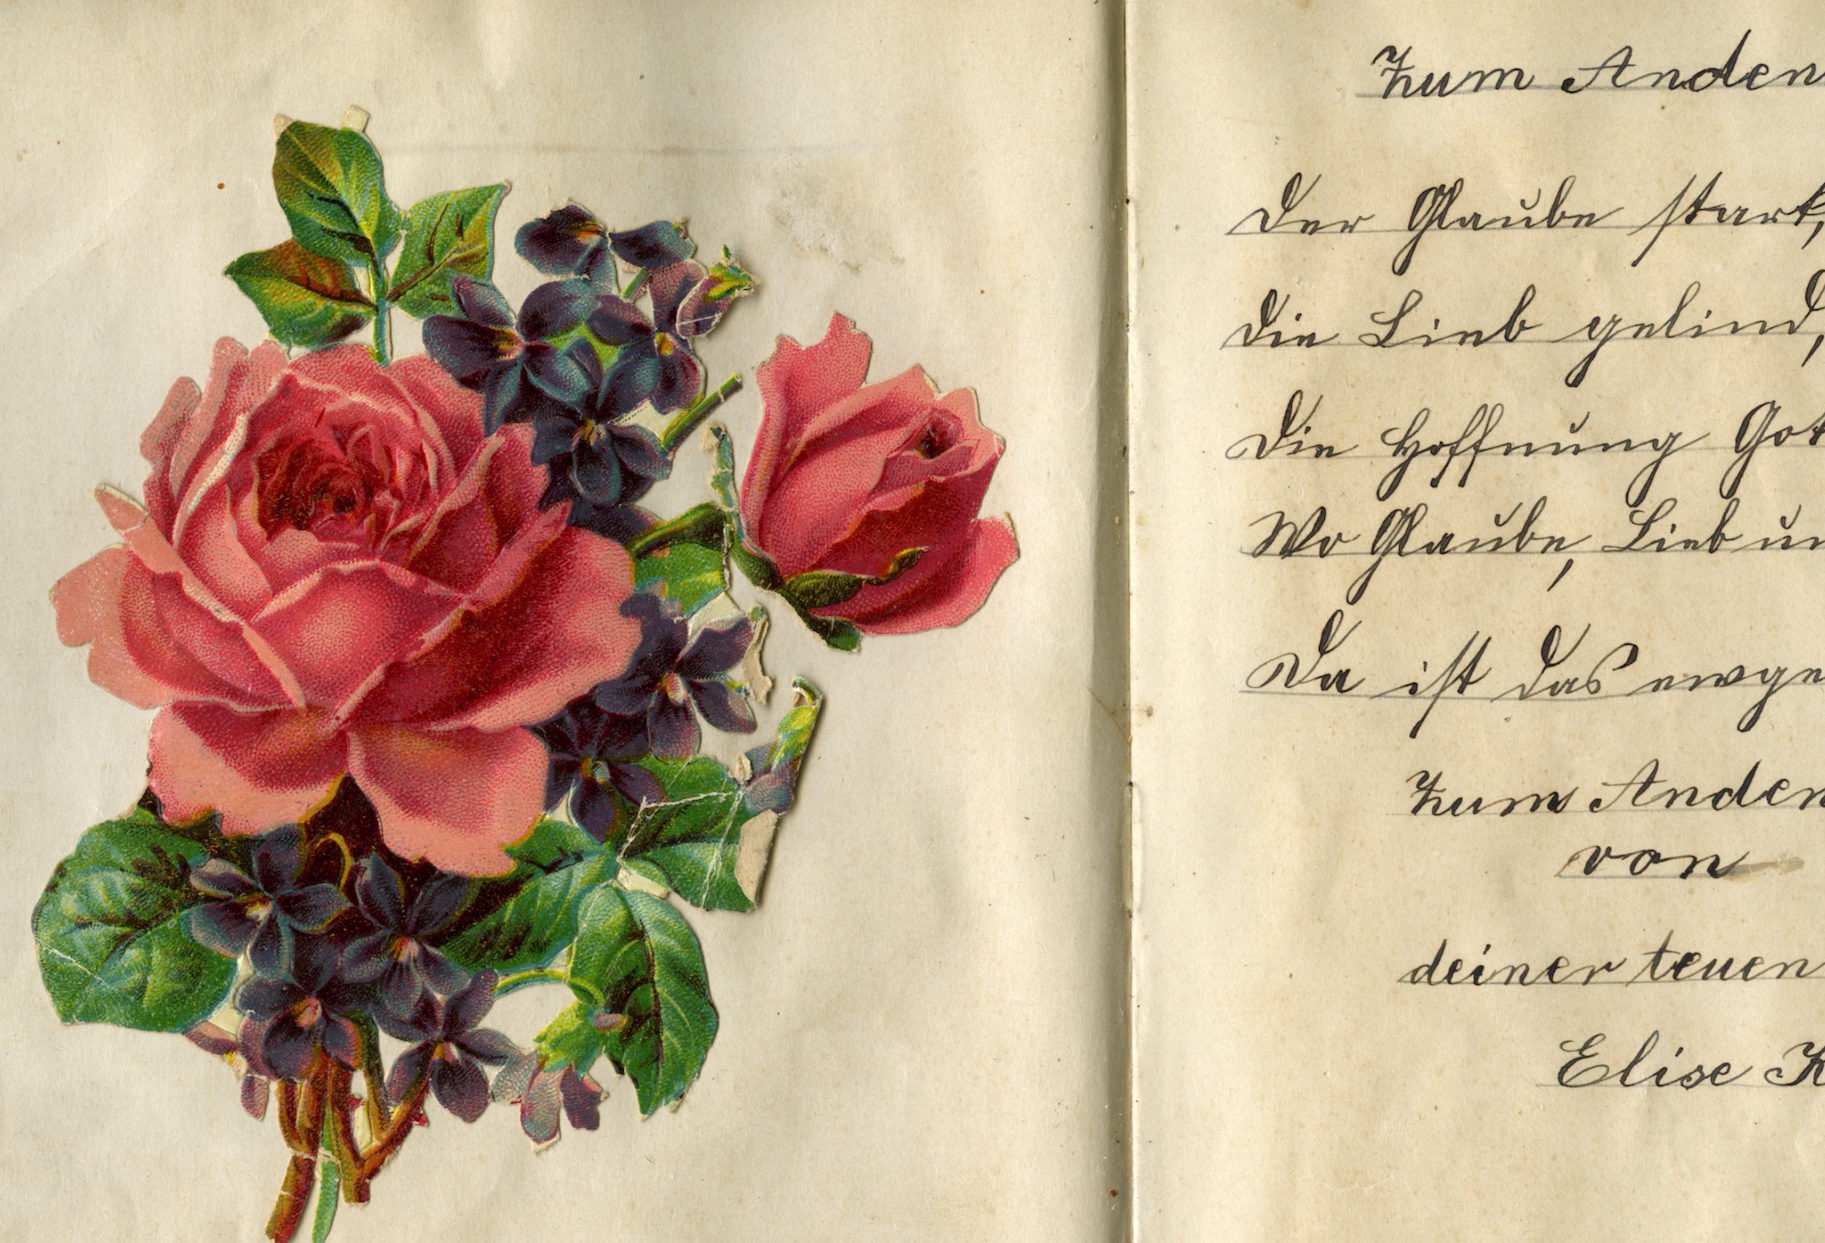 Zum Anden
Der Glaube stark,
Die Lieb gelind,
Die Hoffnung Got
Wo Glaube, Lieb un
Da ist das ewge
Zum Anden
von
deiner teuen
Elise K